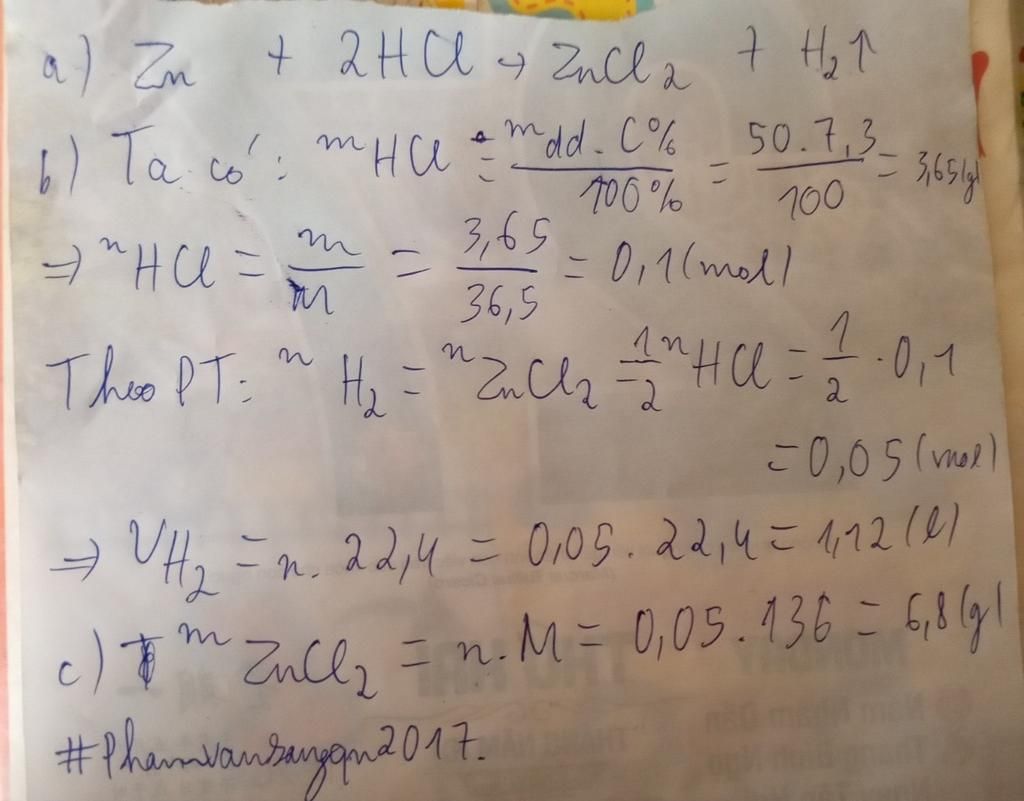 a) Zn + 2HCl → ZnCl₂ + H₂↑
b) Ta có: mHCl = mdd . C% / 100% = 50 . 7,3 / 100 = 3,65(g)
⇒ nHCl = m / M = 3,65 / 36,5 = 0,1(mol)
Theo PT: nH₂ = nZnCl₂ = 1/2 nHCl = 1/2 . 0,1
= 0,05(mol)
⇒ VH₂ = n. 22,4 = 0,05 . 22,4 = 1,12(l)
c) mZnCl₂ = n . M = 0,05 . 136 = 6,8(g)
#Phamvansangqn2017.